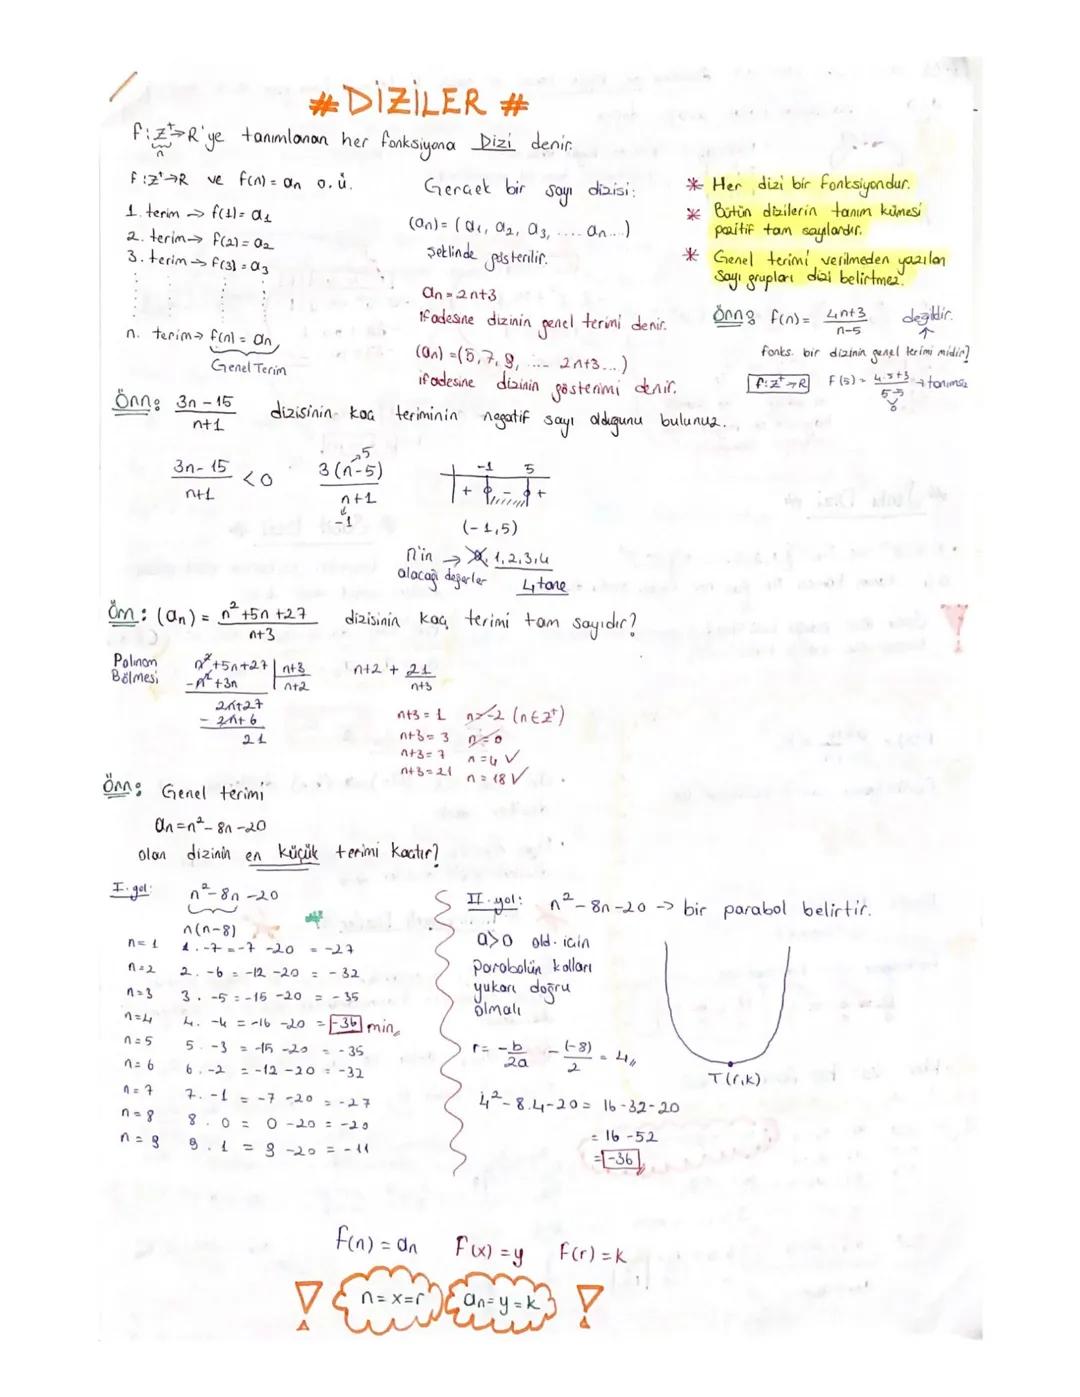 # DİZİLER #
f:Z⁺→R'ye tanımlanan her fonksiyona Dizi denir.
n
f:Z⁺→R ve f(n) = an o.ü.
1. terim → f(1) = a1
2. terim → f(2) = a2
3. terim → f(3) = a3
n. terim → f(n) = an
Genel Terim
Gerçek bir sayı dizisi:
(an) = (a1, a2, a3, .... an...)
şeklinde gösterilir.
an = 2n+3
ifadesine dizinin genel terimi denir.
(an) = (5, 7, 9, .... 2n+3...)
ifadesine dizinin gösterimi denir.
* Her dizi bir fonksiyondur.
* Bütün dizilerin tanım kümesi
pozitif tam sayılardır.
* Genel terimi verilmeden yazılan
sayı grupları dizi belirtmez.
Örn: f(n) = (4n+3)/(n-5) değildir.
↑
fonks. bir dizinin genel terimi midir?
f:Z⁺→R f(5) = (4.5+3)/(5-5) → tanımsız
0
Örn: (3n-15)/(n+1) dizisinin kaç teriminin negatif sayı olduğunu bulunuz.
(3n-15)/(n+1) < 0
3(n-5)/(n+1)
5
-1
-1 5
+ - +
(-1,5)
n'in → 0, 1, 2, 3, 4
alacağı değerler 4 tane
Örn: (an) = (n²+5n+27)/(n+3) dizisinin kaç terimi tam sayıdır?
Polinom
Bölmesi
n²+5n+27 | n+3
-n²+3n | n+2
2n+27
- 2n+6
21
n+2 + 21/(n+3)
n+3 = 1 n=-2 (n∈Z⁺)
n+3 = 3 n=0
n+3 = 7 n=4 ✓
n+3 = 21 n=18 ✓
Örn: Genel terimi
an = n²-8n-20
olan dizinin en küçük terimi kaçtır?
I. yol: n²-8n-20
n(n-8)
n=1 1.-7 = -7 -20 = -27
n=2 2.-6 = -12 -20 = -32
n=3 3.-5 = -15 -20 = -35
n=4 4.-4 = -16 -20 = -36 min
n=5 5.-3 = -15 -20 = -35
n=6 6.-2 = -12 -20 = -32
n=7 7.-1 = -7 -20 = -27
n=8 8.0 = 0 -20 = -20
n=9 9.1 = 9 -20 = -11
II. yol: n²-8n-20 → bir parabol belirtir.
a>0 old. için
parabolün kolları
yukarı doğru
olmalı
r = -b/2a -(-8)/2 = 4
T(r,k)
4²-8.4-20 = 16-32-20
= 16-52
= -36
f(n) = an f(x) = y f(r) = k
n=x=r an=y=k